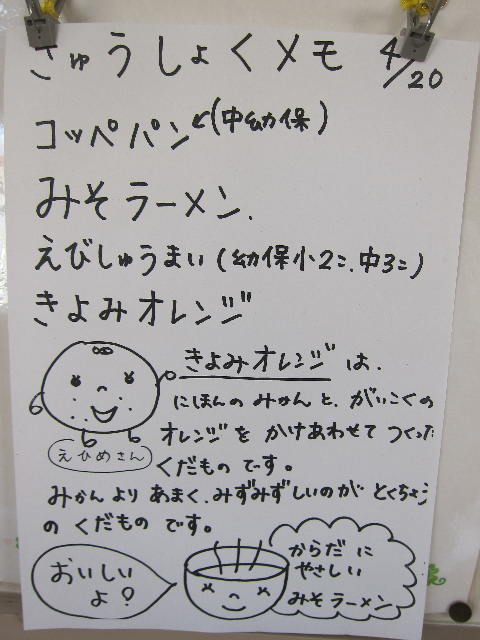 きゅうしょくメモ 4/20
コッペパン←(中幼保)
みそラーメン.
えびしゅうまい(幼保小2こ.中3こ)
きよみオレンジ
きよみオレンジ は、
にほんの みかんと、がいこくの
オレンジを かけあわせて つくった
くだもの です。
えひめさん
みかん より あまく、みずみずしいのが とくちょう
の くだもの です。
おいしい
よ?
からだ に
やさしい
みそ ラーメン